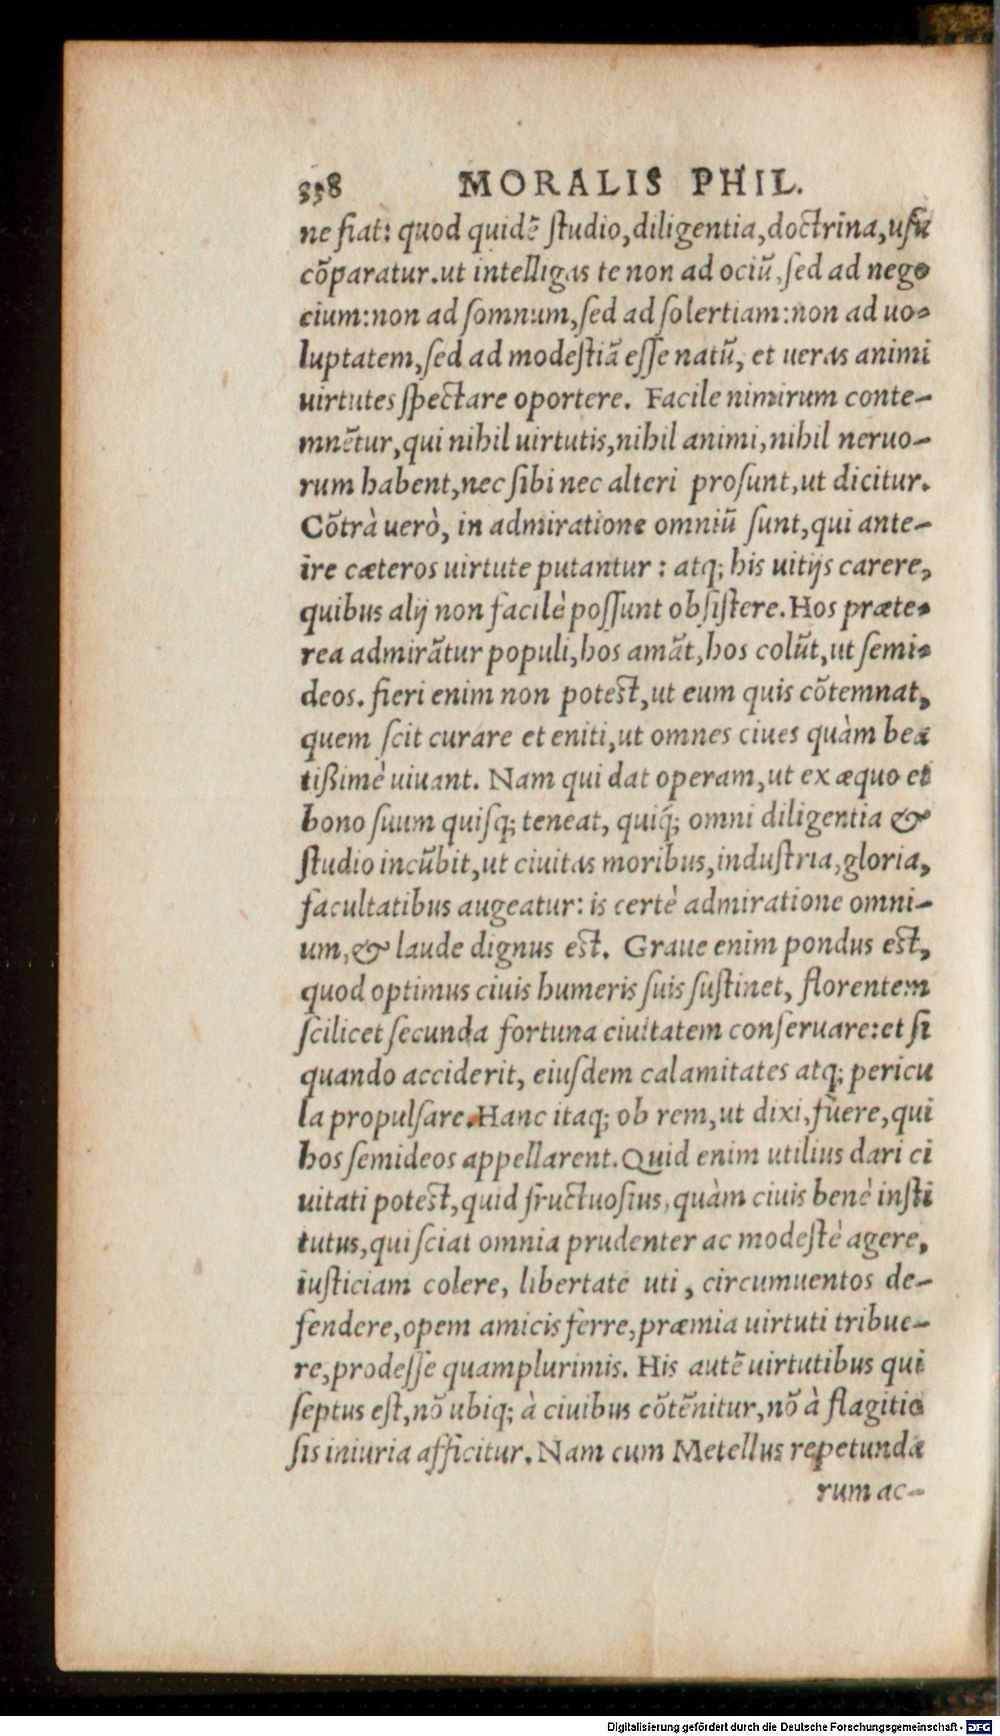 338 MORALIS PHIL.
ne fiat: quod quidẽ ſtudio, diligentia, doctrina, uſu
cõparatur. ut intelligas te non ad ociũ, ſed ad nego
cium: non ad ſomnum, ſed ad ſolertiam: non ad uo-
luptatem, ſed ad modeſtiã eſſe natũ, et ueras animi
uirtutes ſpectare oportere. Facile nimirum conte-
mnẽtur, qui nihil uirtutis, nihil animi, nihil neruo-
rum habent, nec ſibi nec alteri proſunt, ut dicitur.
Cõtrà uerò, in admiratione omniũ ſunt, qui ante-
ire cæteros uirtute putantur: atq; his uitijs carere,
quibus alij non facilè poſſunt obſiſtere. Hos præte-
rea admirãtur populi, hos amãt, hos colũt, ut ſemi-
deos. fieri enim non poteſt, ut eum quis cõtemnat,
quem ſcit curare et eniti, ut omnes ciues quàm bea
tißimè uiuant. Nam qui dat operam, ut ex æquo et
bono ſuum quiſq; teneat, quiq́; omni diligentia &
ſtudio incũbit, ut ciuitas moribus, induſtria, gloria,
facultatibus augeatur: is certè admiratione omni-
um, & laude dignus eſt. Graue enim pondus eſt,
quod optimus ciuis humeris ſuis ſuſtinet, florentem
ſcilicet ſecunda fortuna ciuitatem conſeruare: et ſi
quando acciderit, eiuſdem calamitates atq; pericu
la propulſare. Hanc itaq; ob rem, ut dixi, fuere, qui
hos ſemideos appellarent. Quid enim utilius dari ci
uitati poteſt, quid fructuoſius, quàm ciuis benè inſti
tutus, qui ſciat omnia prudenter ac modeſtè agere,
iuſticiam colere, libertate uti, circumuentos de-
fendere, opem amicis ferre, præmia uirtuti tribue-
re, prodeſſe quamplurimis. His autẽ uirtutibus qui
ſeptus eſt, nõ ubiq; à ciuibus cõtẽnitur, nõ à flagitio
ſis iniuria afficitur. Nam cum Metellus repetunda
rum ac-
Digitalisierung gefördert durch die Deutsche Forschungsgemeinschaft - DFG